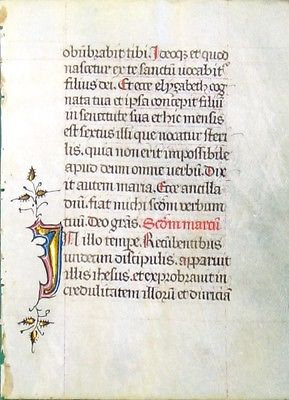 obūbrabit tibi. Ideoqȝ et quod
nascetur ex te sanctū uocabit̄
filius dei. Et ecce elyzabeth cog
nata tua et ipsa concepit filiū
in senectute sua et hic mensis
est sextus illi que uocatur steri
lis. quia non erit impossibile
apud deum omne uerbū. Dix
it autem maria. Ecce ancilla
dn̄i. fiat michi scd̄m uerbum
tuū. Deo grās. Scd̄m marcū
In illo tempe. Recūbentibus
undecim discipulis. apparuit
illis ihesus. et exprobrauit in
credulitatem illorū et duriciā